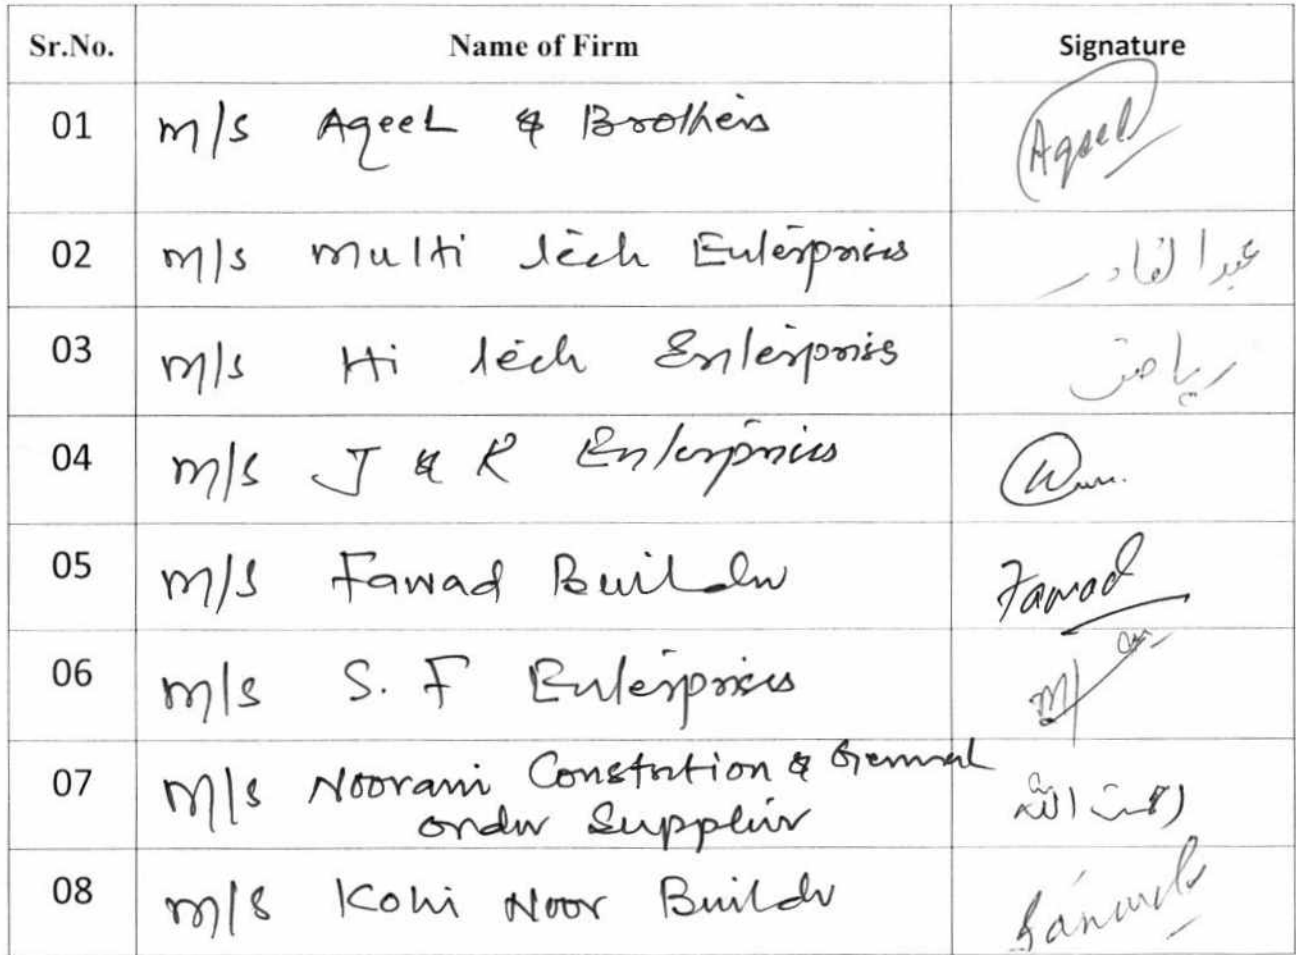 Sr.No. Name of Firm Signature
01 M/S AqeeL & Brothers Aqeel
02 M/S Multi tech Enterprises عبدالقادر
03 M/S Hi tech Enterprises ریاض
04 M/S J & R Enterprises
05 M/S Fawad Builder Fawad
06 M/S S. F Enterprises
07 M/S Noorani Constrution & General
order Supplier
08 M/S Kohi Noor Builder